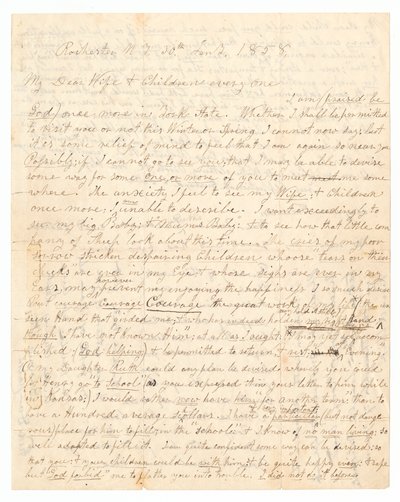 Rochester N Y 30th Jan'y, 1858,
My Dear Wife & Children every one
I am (praised be
God) once more in York State. Whether I shall be permitted
to visit you or not this Winter or Spring, I cannot now say; but
it is some relief of mind to feel that I am again so near you
Possibly; if I cannot go to see you; that I may be able to devise
some way for some one or more of you to meet me some
where. The anxiety I feel to see my Wife, & Children
once more, I am unable to describe. I want exceedingly to
see my big Baby; & Ruths Baby; & to see how that little com
pany of Sheep look about this time. The cries of my poor
sorrow stricken despairing Children whoose tears on their
cheeks are ever in my Eye; & whose sighs are ever in my
Ears; may however prevent my enjoying the happiness I so much desire
But courage Courage Courage the great work of my life the un
seen Hand that guided me; & who has indeed holden my right hand
though I have not known Him; at all as I ought; may yet see accom
plished (God helping;) & be permitted to return, & rest at Evening.
O my Daughter Ruth could any plan be devised whereby you could
let Henry go "to School" (as you expressed it in your letter to him while
in Kansas;) I would rather now have him for another term: than to
have a Hundred average scholars. I have a particular & very important; but not dange
rous place for him to fill; in the "school"; & I know of no man living; so
well adapted to fill it. I am quite confident some way can be devised; so
that you; & your children could be with him; & be quite happy even: & safe
but God forbid me to flatter you into trouble. I did not do it before